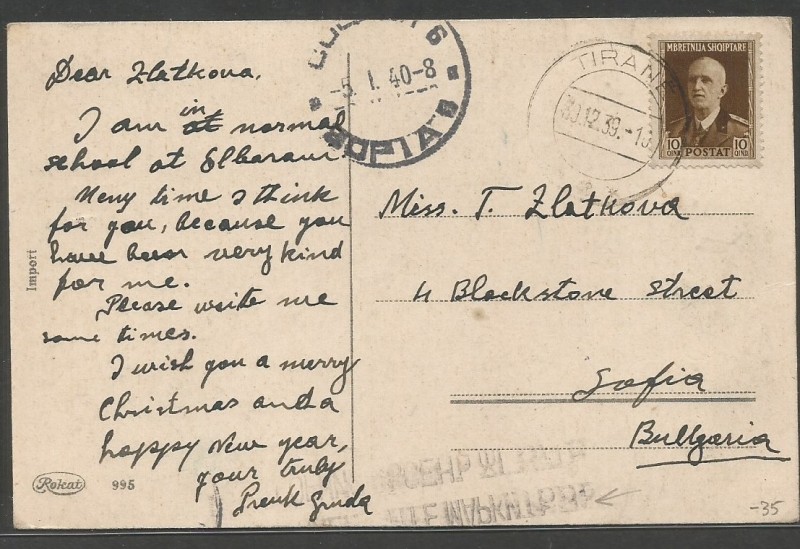 Dear Zlatkova,
I am at in normal
school at Elbasan
Meny time I think
for you, because you
have been very kind
for me.
Please write me
some times.
I wish you a merry
Christmas and a
happy New year,
your truly
Prenk Gruda
Import
Rokat 995
5. I. 40-8
TIRANË
30.12.39.-1
MBRETNIJA SHQIPTARE
10 QIND. POSTAT 10 QIND.
Miss. T. Zlatkova
4 Blackstone Street
Sofia
Bullgaria
-35